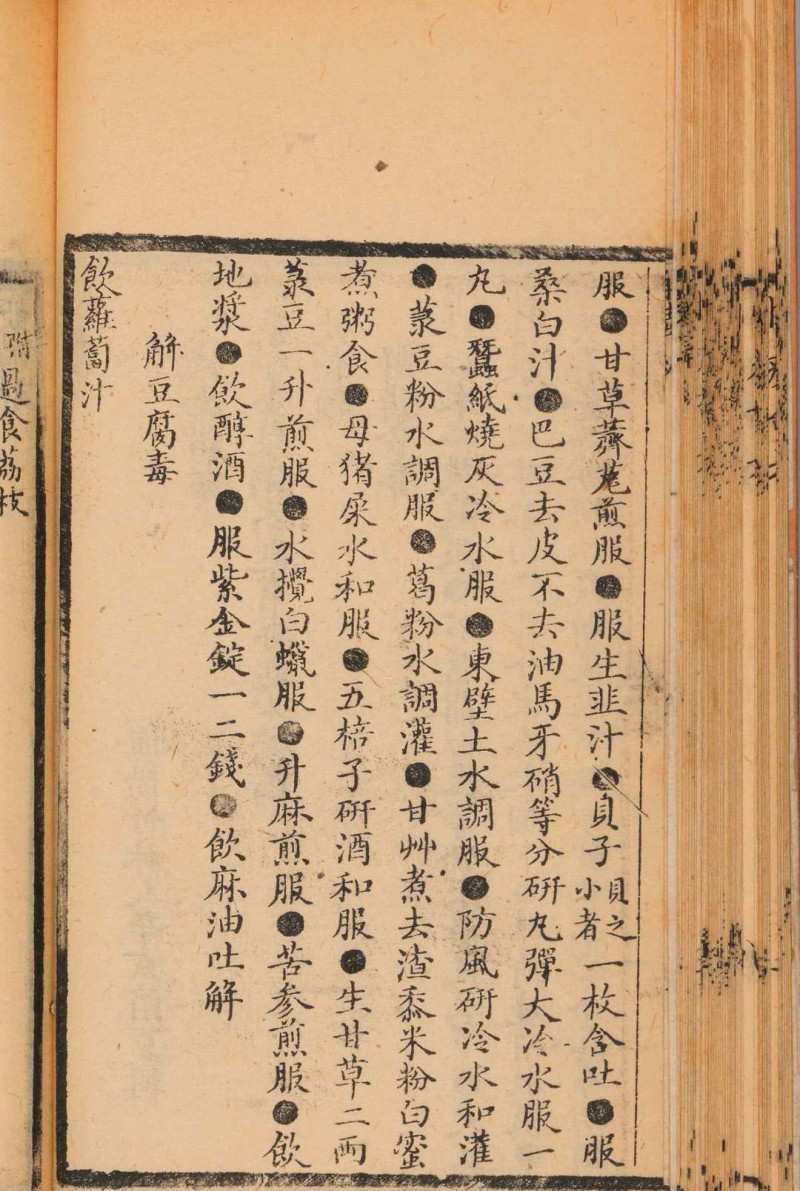 服●甘草薺苨煎服●服生韭汁●貝子貝之小者一枚含吐●服
桑白汁●巴豆去皮不去油馬牙硝等分研丸彈大冷水服一
丸●蠶紙燒灰冷水服●東壁土水調服●防風研冷水和灌
●菉豆粉水調服●葛粉水調灌●甘艸煮去渣黍米粉白蜜
煮粥食●母猪屎水和服●五棓子研酒和服●生甘草二兩
菉豆一升煎服●水攪白蠟服●升麻煎服●苦参煎服●飲
地漿●飲醇酒●服紫金錠一二錢●飲麻油吐解
解豆腐毒
飲蘿蔔汁
附過食荔枝